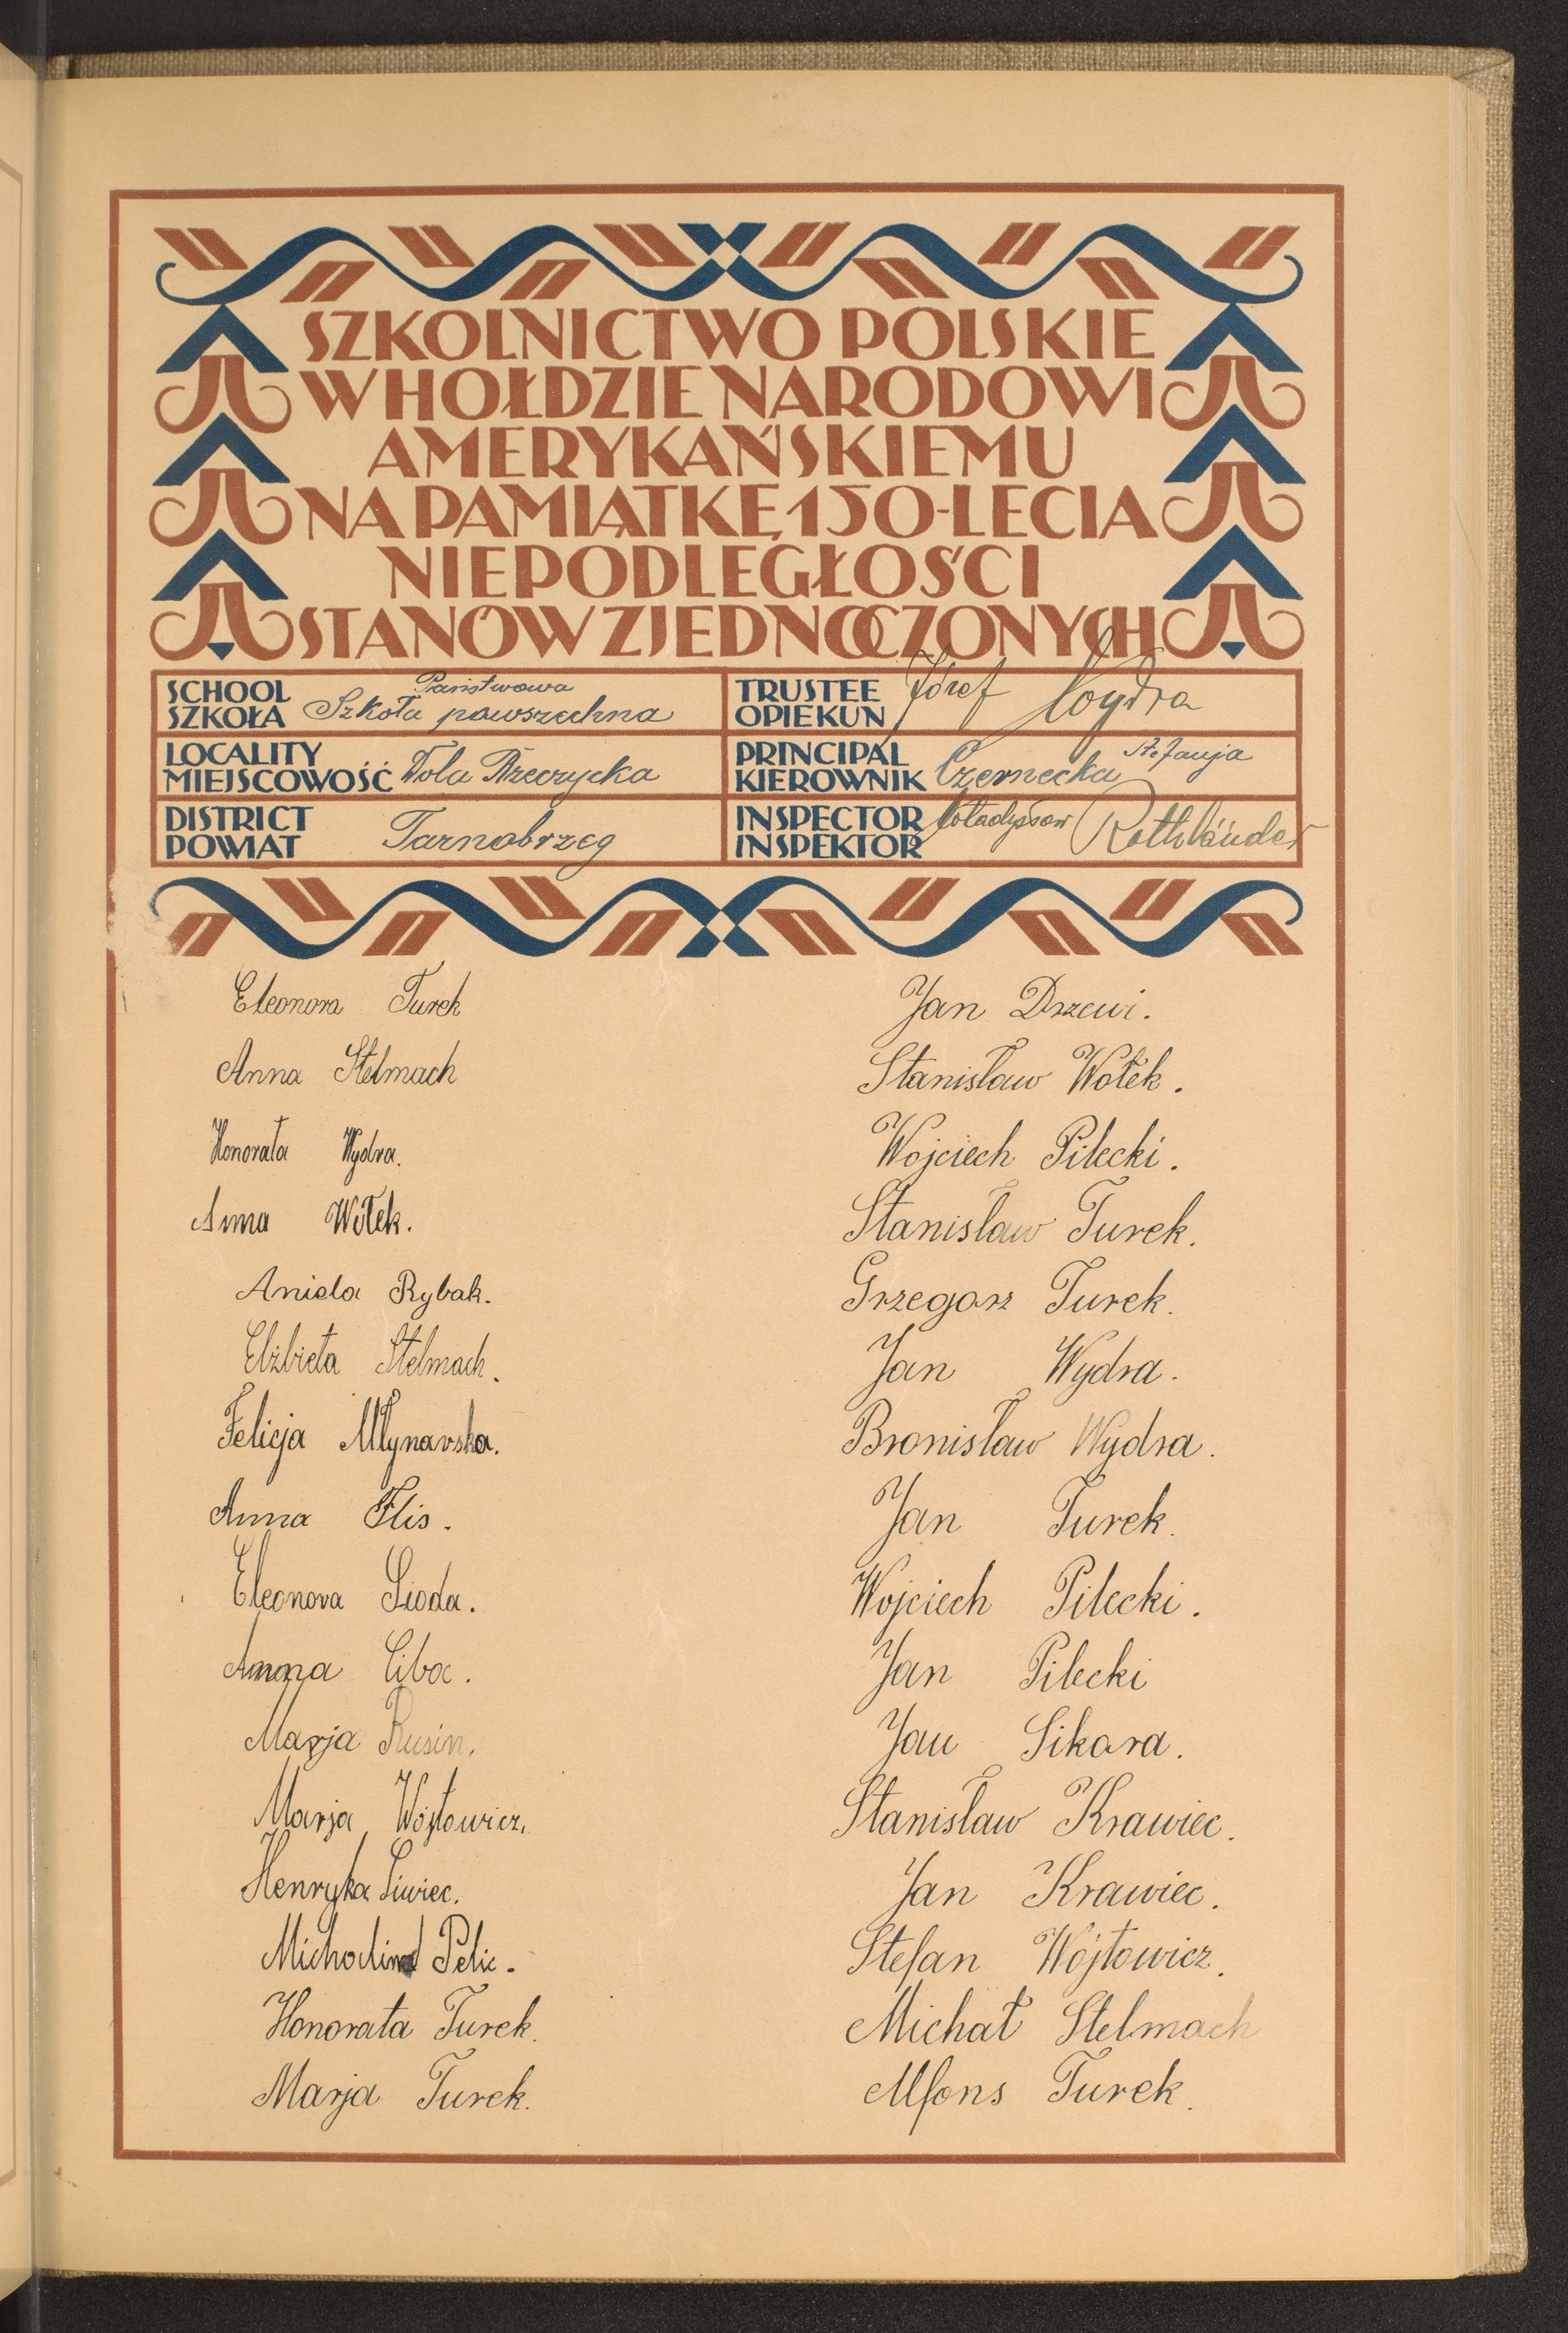 SZKOLNICTWO POLSKIE
W HOŁDZIE NARODOWI
AMERYKAŃSKIEMU
NA PAMIĄTKĘ 150-LECIA
NIEPODLEGŁOŚCI
STANÓW ZJEDNOCZONYCH
SCHOOL
SZKOŁA
Państwowa
Szkoła powszechna
TRUSTEE
OPIEKUN
Józef Wydra
LOCALITY
MIEJSCOWOŚĆ
Wola Rzeczycka
PRINCIPAL
KIEROWNIK
Czernecka Stefanja
DISTRICT
POWIAT
Tarnobrzeg
INSPECTOR
INSPEKTOR
Władysław Rothländer
Eleonora Turek
Anna Stelmach
Honorata Wydra.
Anna Wołek.
Aniela Rybak.
Elżbieta Stelmach.
Felicja Młynarska.
Anna Flis.
Eleonora Sioda.
Anna Ciba.
Marja Rusin.
Marja Wójtowicz.
Henryka Siwiec.
Michalina Pelic.
Honorata Turek.
Marja Turek.
Jan Drzewi.
Stanisław Wołek.
Wojciech Pilecki.
Stanisław Turek.
Grzegorz Turek.
Jan Wydra.
Bronisław Wydra.
Jan Turek.
Wojciech Pilecki.
Jan Pilecki
Jan Sikora.
Stanisław Krawiec.
Jan Krawiec.
Stefan Wójtowicz.
Michał Stelmach
Alfons Turek.